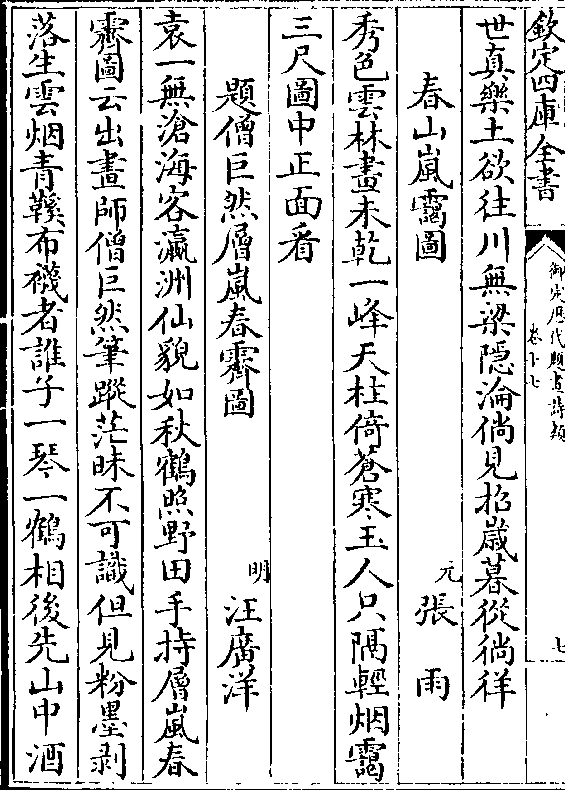 欽定四庫全書
御定歴代題畫詩類
卷十七
七
世真樂土欲往川無梁隠淪倘見招歳暮從徜徉
春山嵐靄圖
元張雨
秀色雲林畫未乾一峰天柱倚蒼寒玉人只隔輕烟靄
三尺圖中正面看
題僧巨然層嵐春霽圖
明汪廣洋
袁一無滄海客瀛洲仙貌如秋鶴照野田手持層嵐春
霽圖云出畫師僧巨然筆蹤茫昧不可識但見粉墨剥
落生雲烟青鞵布襪者誰子一琴一鶴相後先山中酒